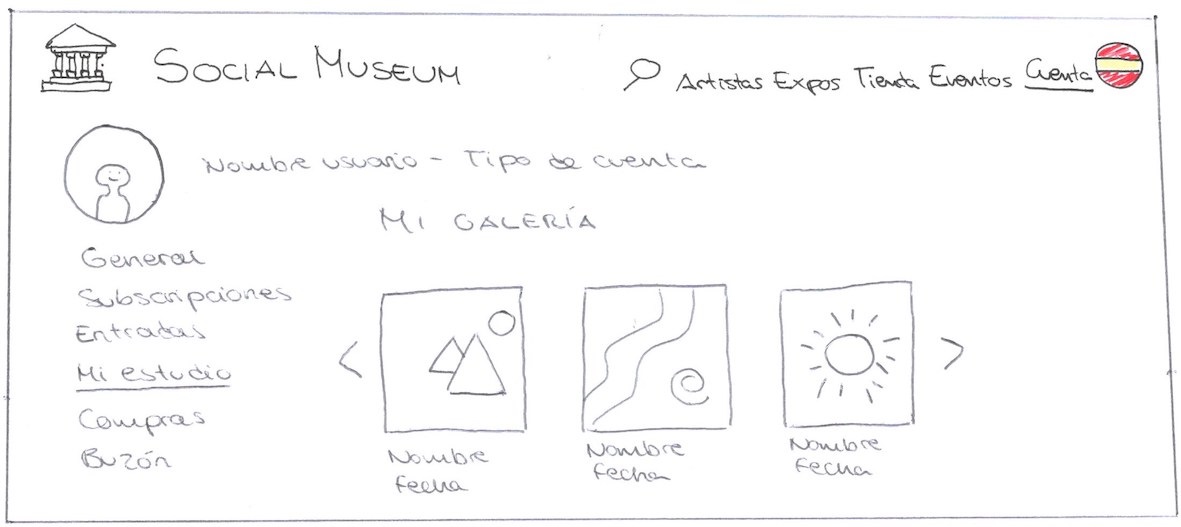 SOCIAL MUSEUM
Artistas Expos Tienda Eventos Cuenta
Nombre usuario - Tipo de cuenta
MI GALERÍA
General
Subscripciones
Entradas
Mi estudio
Compras
Buzón
Nombre
Fecha
Nombre
Fecha
Nombre
Fecha